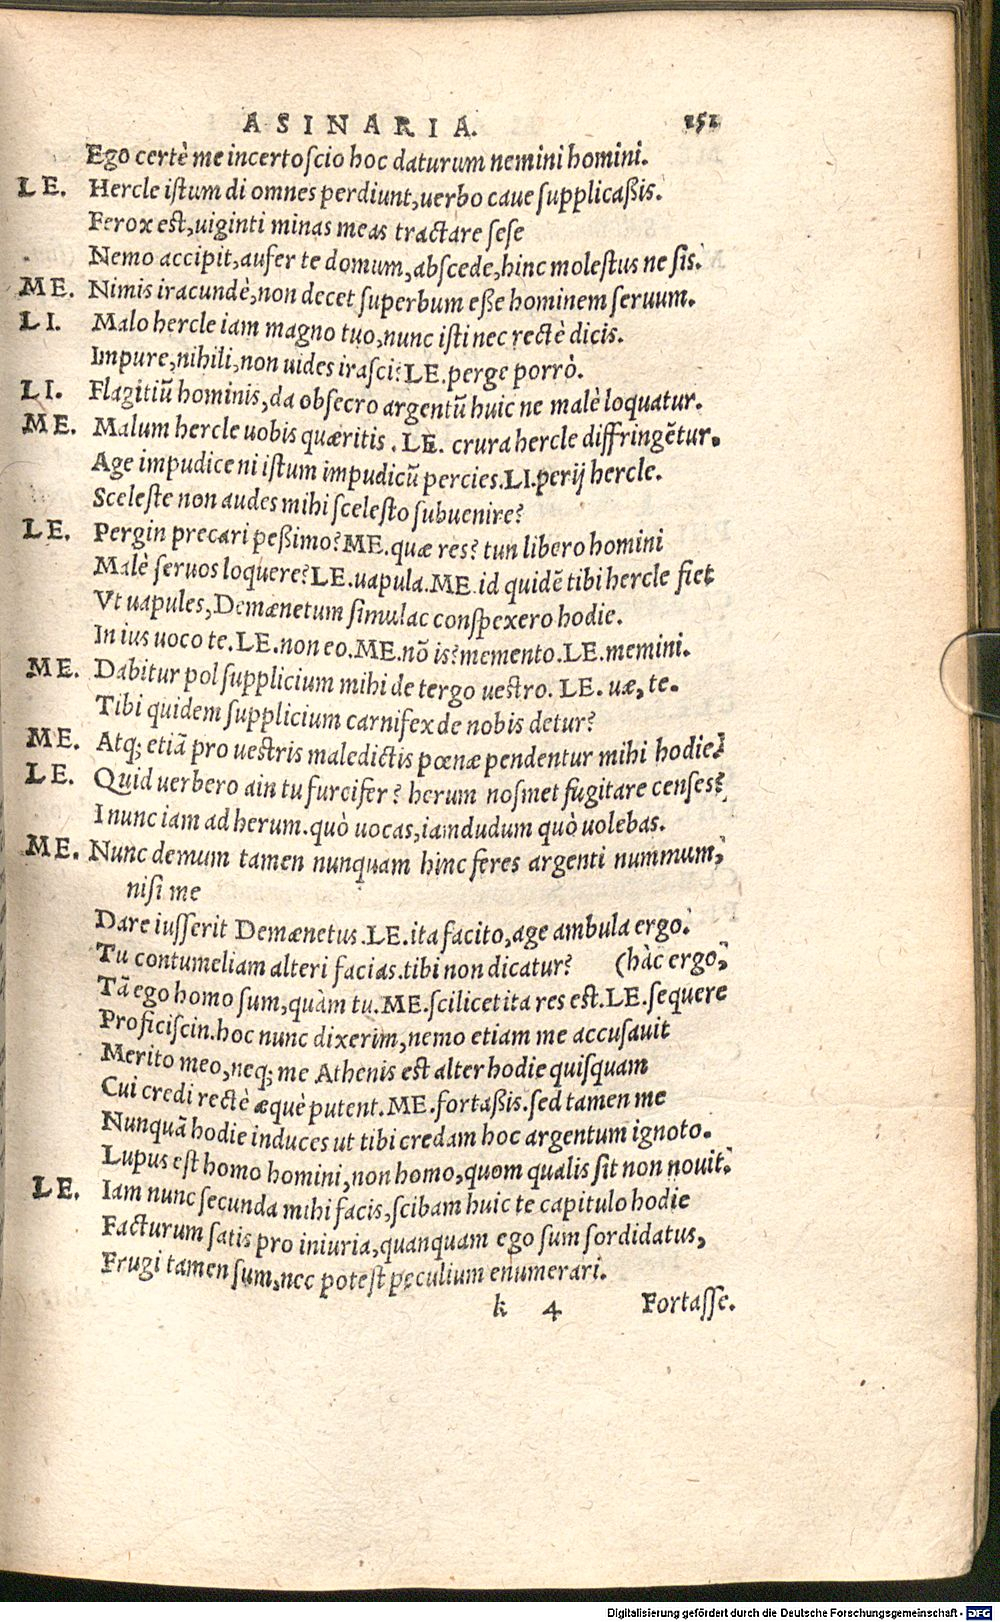 ASINARIA. 151
Ego certè me incerto scio hoc daturum nemini homini.
LE. Hercle istum di omnes perdiunt, uerbo caue supplicaßis.
Ferox est, uiginti minas meas tractare sese
Nemo accipit, aufer te domum, abscede, hinc molestus ne sis.
ME. Nimis iracundè, non decet superbum eße hominem seruum.
LI. Malo hercle iam magno tuo, nunc isti nec rectè dicis.
Impure, nihili, non uides irasci? LE. perge porrò.
LI. Flagitiū hominis, da obsecro argentū huic ne malè loquatur.
ME. Malum hercle uobis quæritis. LE. crura hercle diffringētur.
Age impudice ni istum impudicū percies. LI. perij hercle.
Sceleste non audes mihi scelesto subuenire?
LE. Pergin precari peßimo? ME. quæ res? tun libero homini
Malè seruos loquere? LE. uapula. ME id quidē tibi hercle fiet
Vt uapules, Demænetum simulac conspexero hodie.
In ius uoco te. LE. non eo. ME. nō is? memento. LE. memini.
ME. Dabitur pol supplicium mihi de tergo uestro. LE. uæ, te.
Tibi quidem supplicium carnifex de nobis detur?
ME. Atq; etiā pro uestris maledictis pœnæ pendentur mihi hodie.
LE. Quid uerbero ain tu furcifer? herum nosmet fugitare censes?
I nunc iam ad herum. quò uocas, iamdudum quò uolebas.
ME. Nunc demum tamen nunquam hinc feres argenti nummum,
nisi me
Dare iusserit Demænetus. LE. ita facito, age ambula ergo.
Tu contumeliam alteri facias. tibi non dicatur? (hàc ergo,
Tā ego homo sum, quàm tu. ME. scilicet ita res est. LE. sequere
Proficiscin. hoc nunc dixerim, nemo etiam me accusauit
Merito meo, neq; me Athenis est alter hodie quisquam
Cui credi rectè æquè putent. ME. fortaßis. sed tamen me
Nunquā hodie induces ut tibi credam hoc argentum ignoto.
Lupus est homo homini, non homo, quom qualis sit non nouit.
LE. Iam nunc secunda mihi facis, scibam huic te capitulo hodie
Facturum satis pro iniuria, quanquam ego sum sordidatus,
Frugi tamen sum, nec potest peculium enumerari.
k 4 Fortasse.
Digitalisierung gefördert durch die Deutsche Forschungsgemeinschaft - DFG